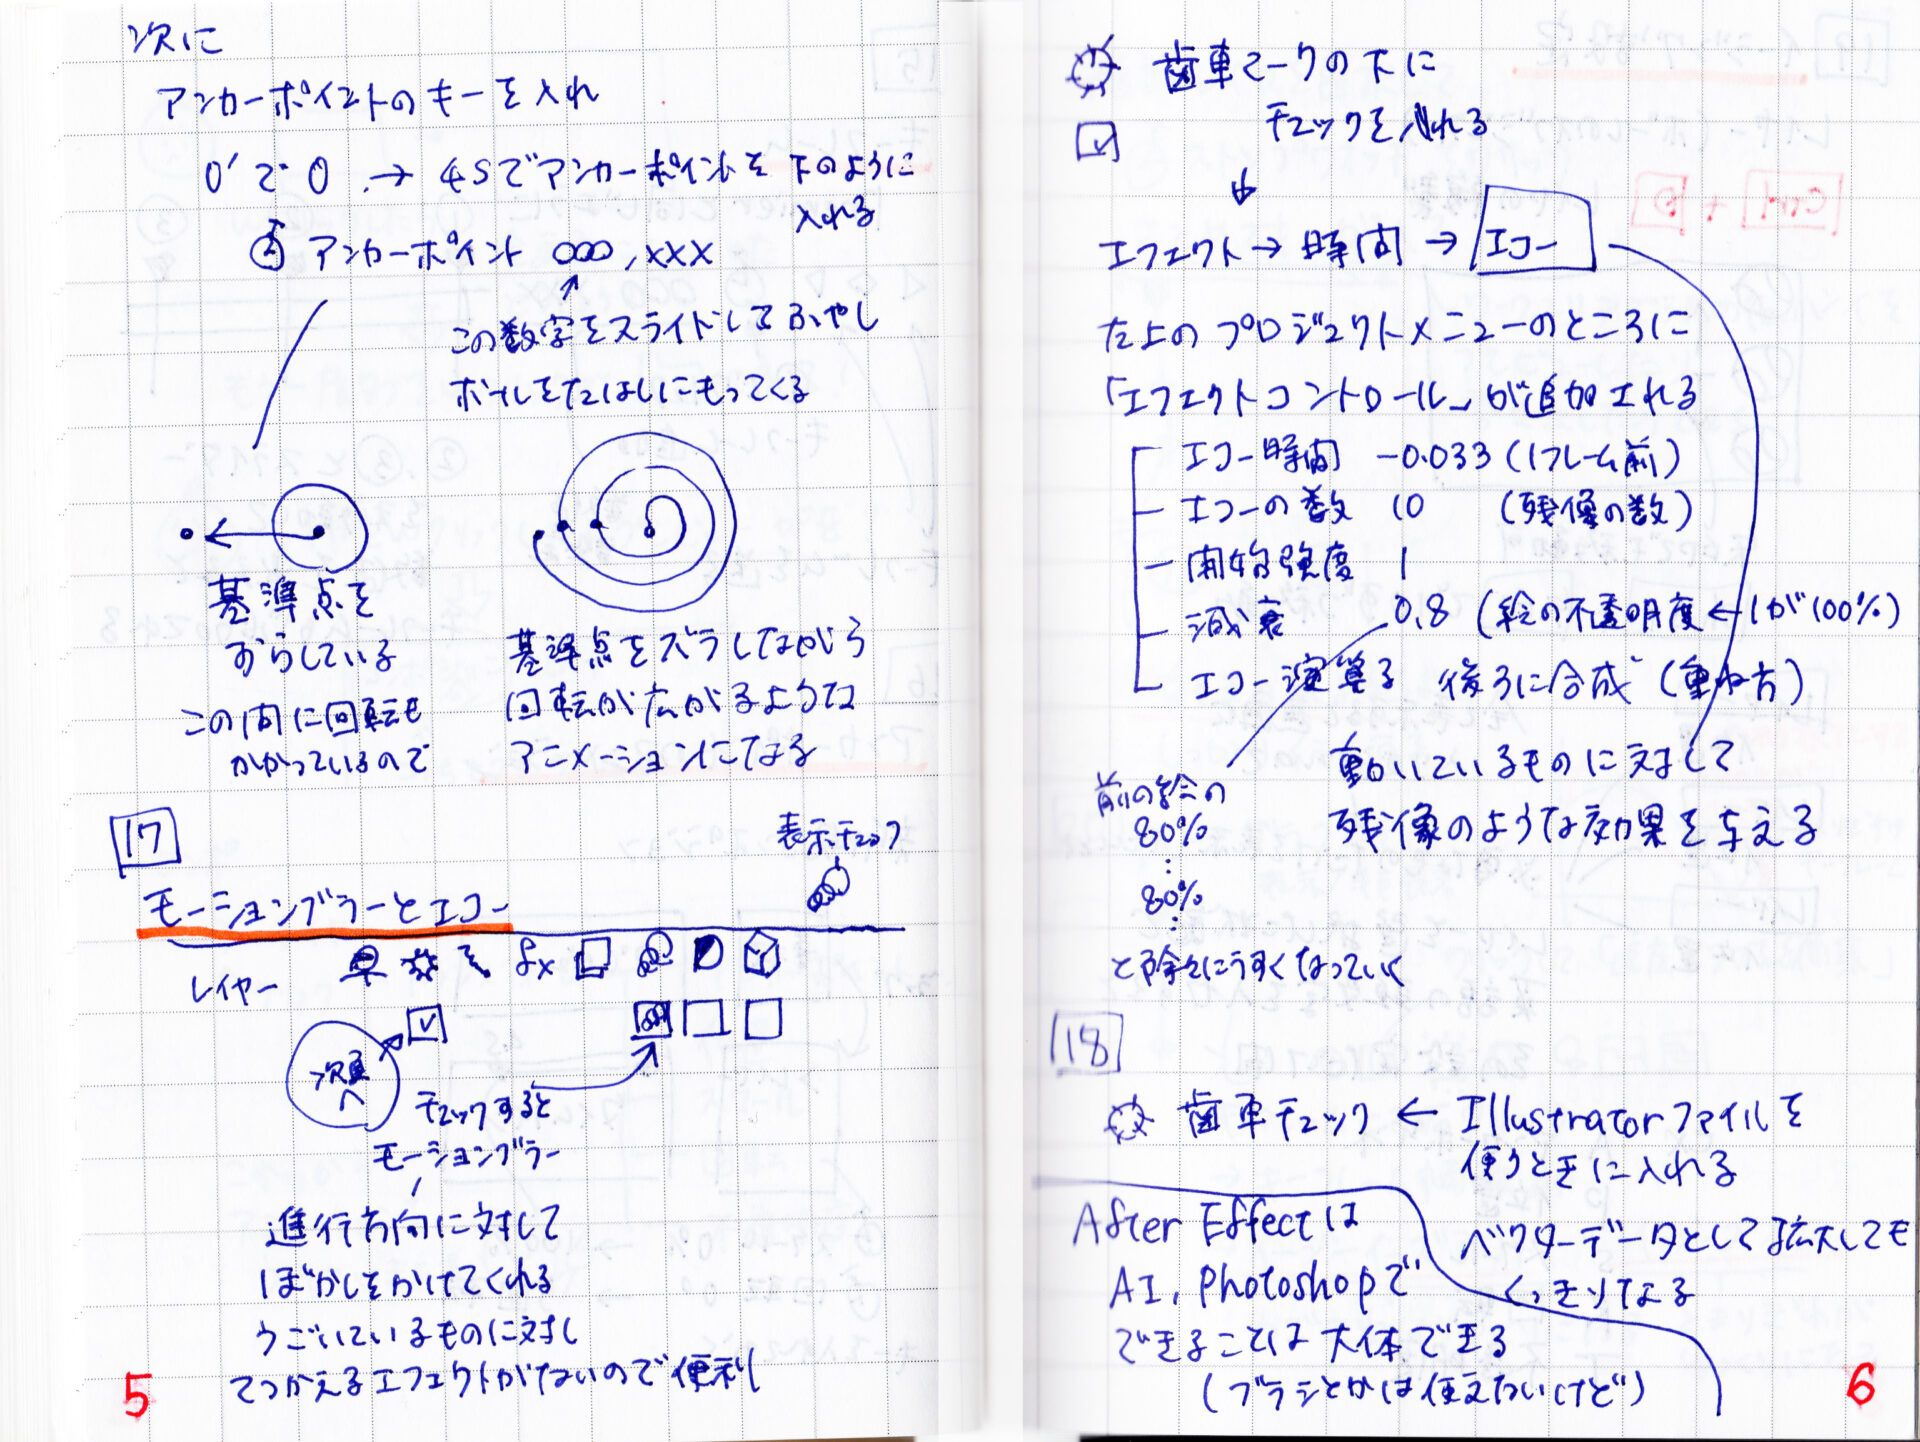 次に
アンカーポイントのキーを入れ
0'で0 → 4Sでアンカーポイントを下のように
入れる
アンカーポイント ○○○,×××
この数字をスライドしてふやし
ボールを左はしにもってくる
基準点を
ずらしている
この間に回転も
かかっているので
基準点をズラしながら
回転が広がるような
アニメーションになる
17
モーションブラーとエコー
表示チェック
レイヤー
fx
次頁
へ
チェックすると
モーションブラー
進行方向に対して
ぼかしをかけてくれる
うごいているものに対し
てつかえるエフェクトがないので便利
5
歯車マークの下に
チェックを入れる
エフェクト→時間→エコー
左上のプロジェクトメニューのところに
「エフェクトコントロール」が追加される
エコー時間 -0.033(1フレーム前)
エコーの数 10 (残像の数)
開始強度 1
減衰 0.8 (絵の不透明度←1が100%)
エコー演算子 後ろに合成 (重ね方)
動いているものに対して
残像のような効果を与える
前の絵の
80%
:
80%
:
と除々にうすくなっていく
18
歯車チェック ← Illustratorファイルを
使うときに入れる
ベクターデータとして拡大しても
くっきりなる
After Effectは
AI, Photoshopで
できることは大体できる
(ブラシとかは使えないけど)
6